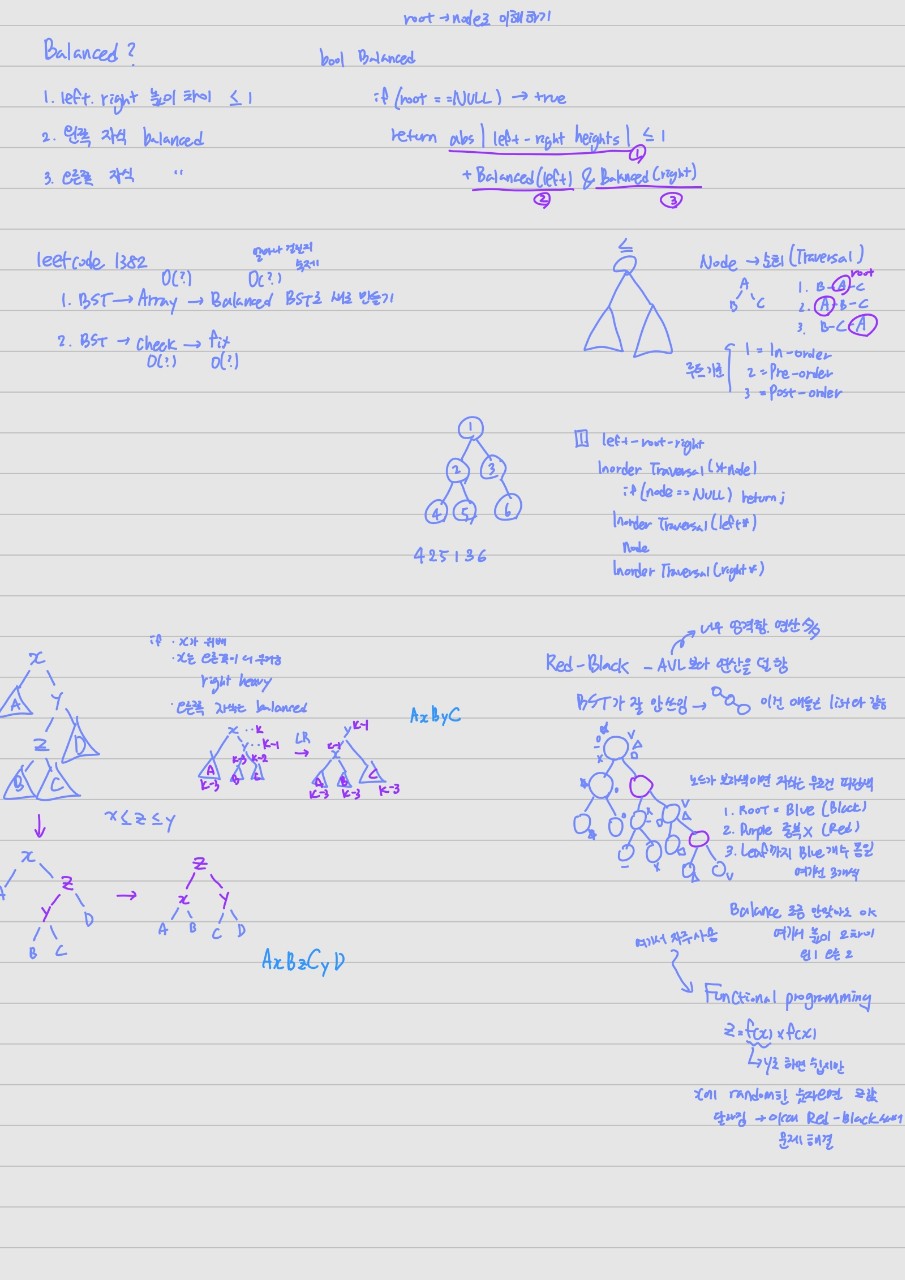 root → node로 이해하기
Balanced ?
1. left. right 높이 차이 ≤ 1
2. 왼쪽 자식 balanced
3. 오른쪽 자식 "
bool Balanced
if (root == NULL) → true
return abs | left - right heights | ≤ 1
①
+ Balanced(left) & Balanced(right)
② ③
leetcode 1382
O(?) O(?)
1. BST → Array → Balanced BST로 새로 만들기
2. BST → check → fix
O(?) O(?)
≤
Node → 순회 (Traversal)
A
B C
root
1. B-A-C
2. A-B-C
3. B-C-A
루트기준
1 = In-order
2 = Pre-order
3 = Post-order
1
2 3
4 5 6
4 2 5 1 3 6
1 left-root-right
Inorder Traversal (*node)
if (node == NULL) return;
Inorder Traversal (left*)
node
Inorder Traversal (right*)
if · x가 위배
· x는 오른쪽이 더 무거움
right heavy
· 오른쪽 자식는 balanced
x
A y
z D
B C
x ·· K
y ·· K-1
K-3 K-2
A B C
K-3
LR
→
y K-1
x
A B C
K-3 K-3 K-3
AxByC
x ≤ z ≤ y
x
A z
y D
B C
→
z
x y
A B C D
AxBzCyD
너무 엄격함. 연산
Red-Black - AVL보다 연산을 덜 함
BST가 잘 안쓰임 → 이런 애들은 list와 같음
노드가 보라색이면 자식는 무조건 파란색
1. ROOT = Blue (Black)
2. Purple 중복 X (Red)
3. Leaf까지 Blue 개수 동일
여기선 3개씩
Balance 조금 안맞아도 OK
여기서 높이
왼 1 오른 2
여기서 자주 사용
Functional programming
z = f(x) x f(x)
y로 하면 쉽지만
x에 random한 숫자라면
달라짐 → Red-black
문제 해결